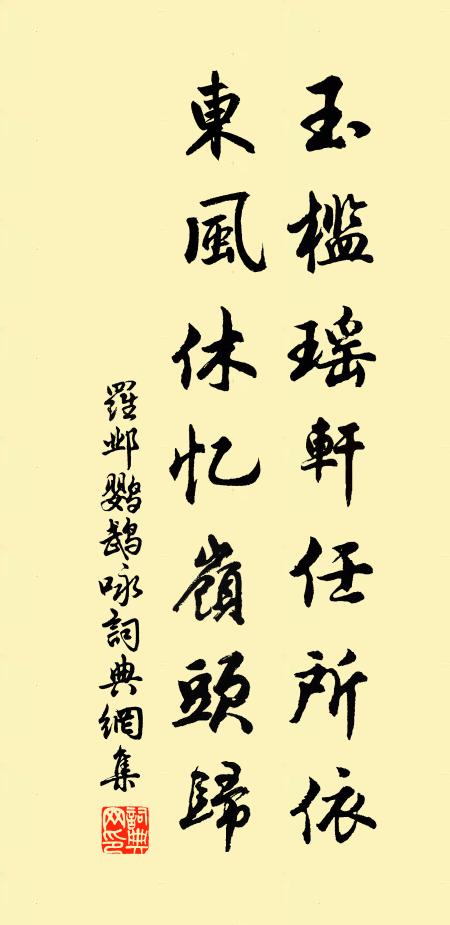 玉檻瑶軒任所依
東風休忆嶺頭歸
羅邺鹦鵡咏詞典網集
詞典网印